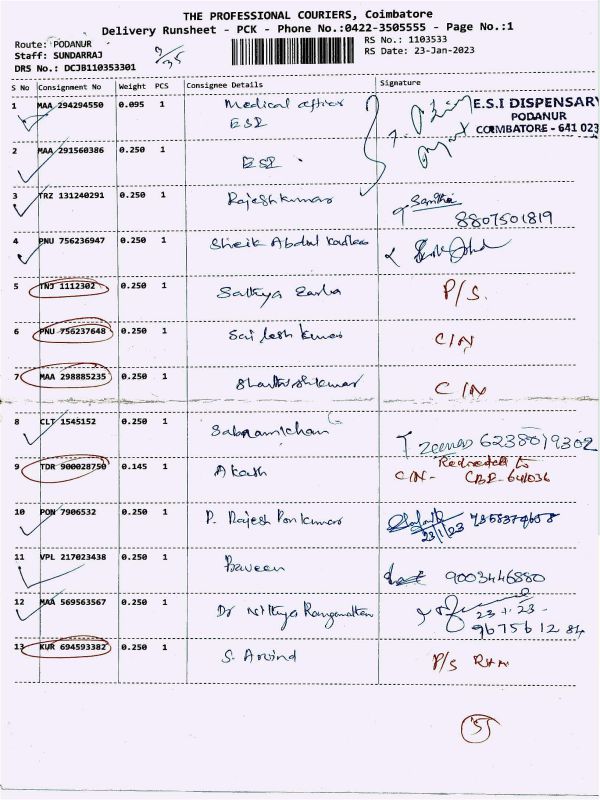 THE PROFESSIONAL COURIERS, Coimbatore
Delivery Runsheet - PCK - Phone No.:0422-3505555 - Page No.:1
Route: PODANUR
Staff: SUNDARRAJ
DRS No.: DCJB110353301
9/35
RS No.: 1103533
RS Date: 23-Jan-2023
S No Consignment No Weight PCS Consignee Details Signature
1 MAA 294294550 0.095 1 Medical officer
ESI
E.S.I DISPENSARY
PODANUR
COIMBATORE - 641 023
2 MAA 291560386 0.250 1 ESI
3 TRZ 131240291 0.250 1 Rajeshkumar
8807501819
4 PNU 756236947 0.250 1 Sheik Abdul
5 TNJ 1112302 0.250 1 Sathya P/S.
6 PNU 756237648 0.250 1 Sailesh kumar C/N
7 MAA 298885235 0.250 1 C/N
8 CLT 1545152 0.250 1 6238079302
9 TDR 900028750 0.145 1 Akash Redirected to
C/N- CBE-641036
10 PON 7906532 0.250 1 P. Rajesh Ponkumar
23/1/23
11 VPL 217023438 0.250 1 Praveen 9003446880
12 MAA 569563567 0.250 1 Dr Nithya Ranganathan
23-1-23-
96756 12 84
13 KUR 694593382 0.250 1 S. Arvind P/S